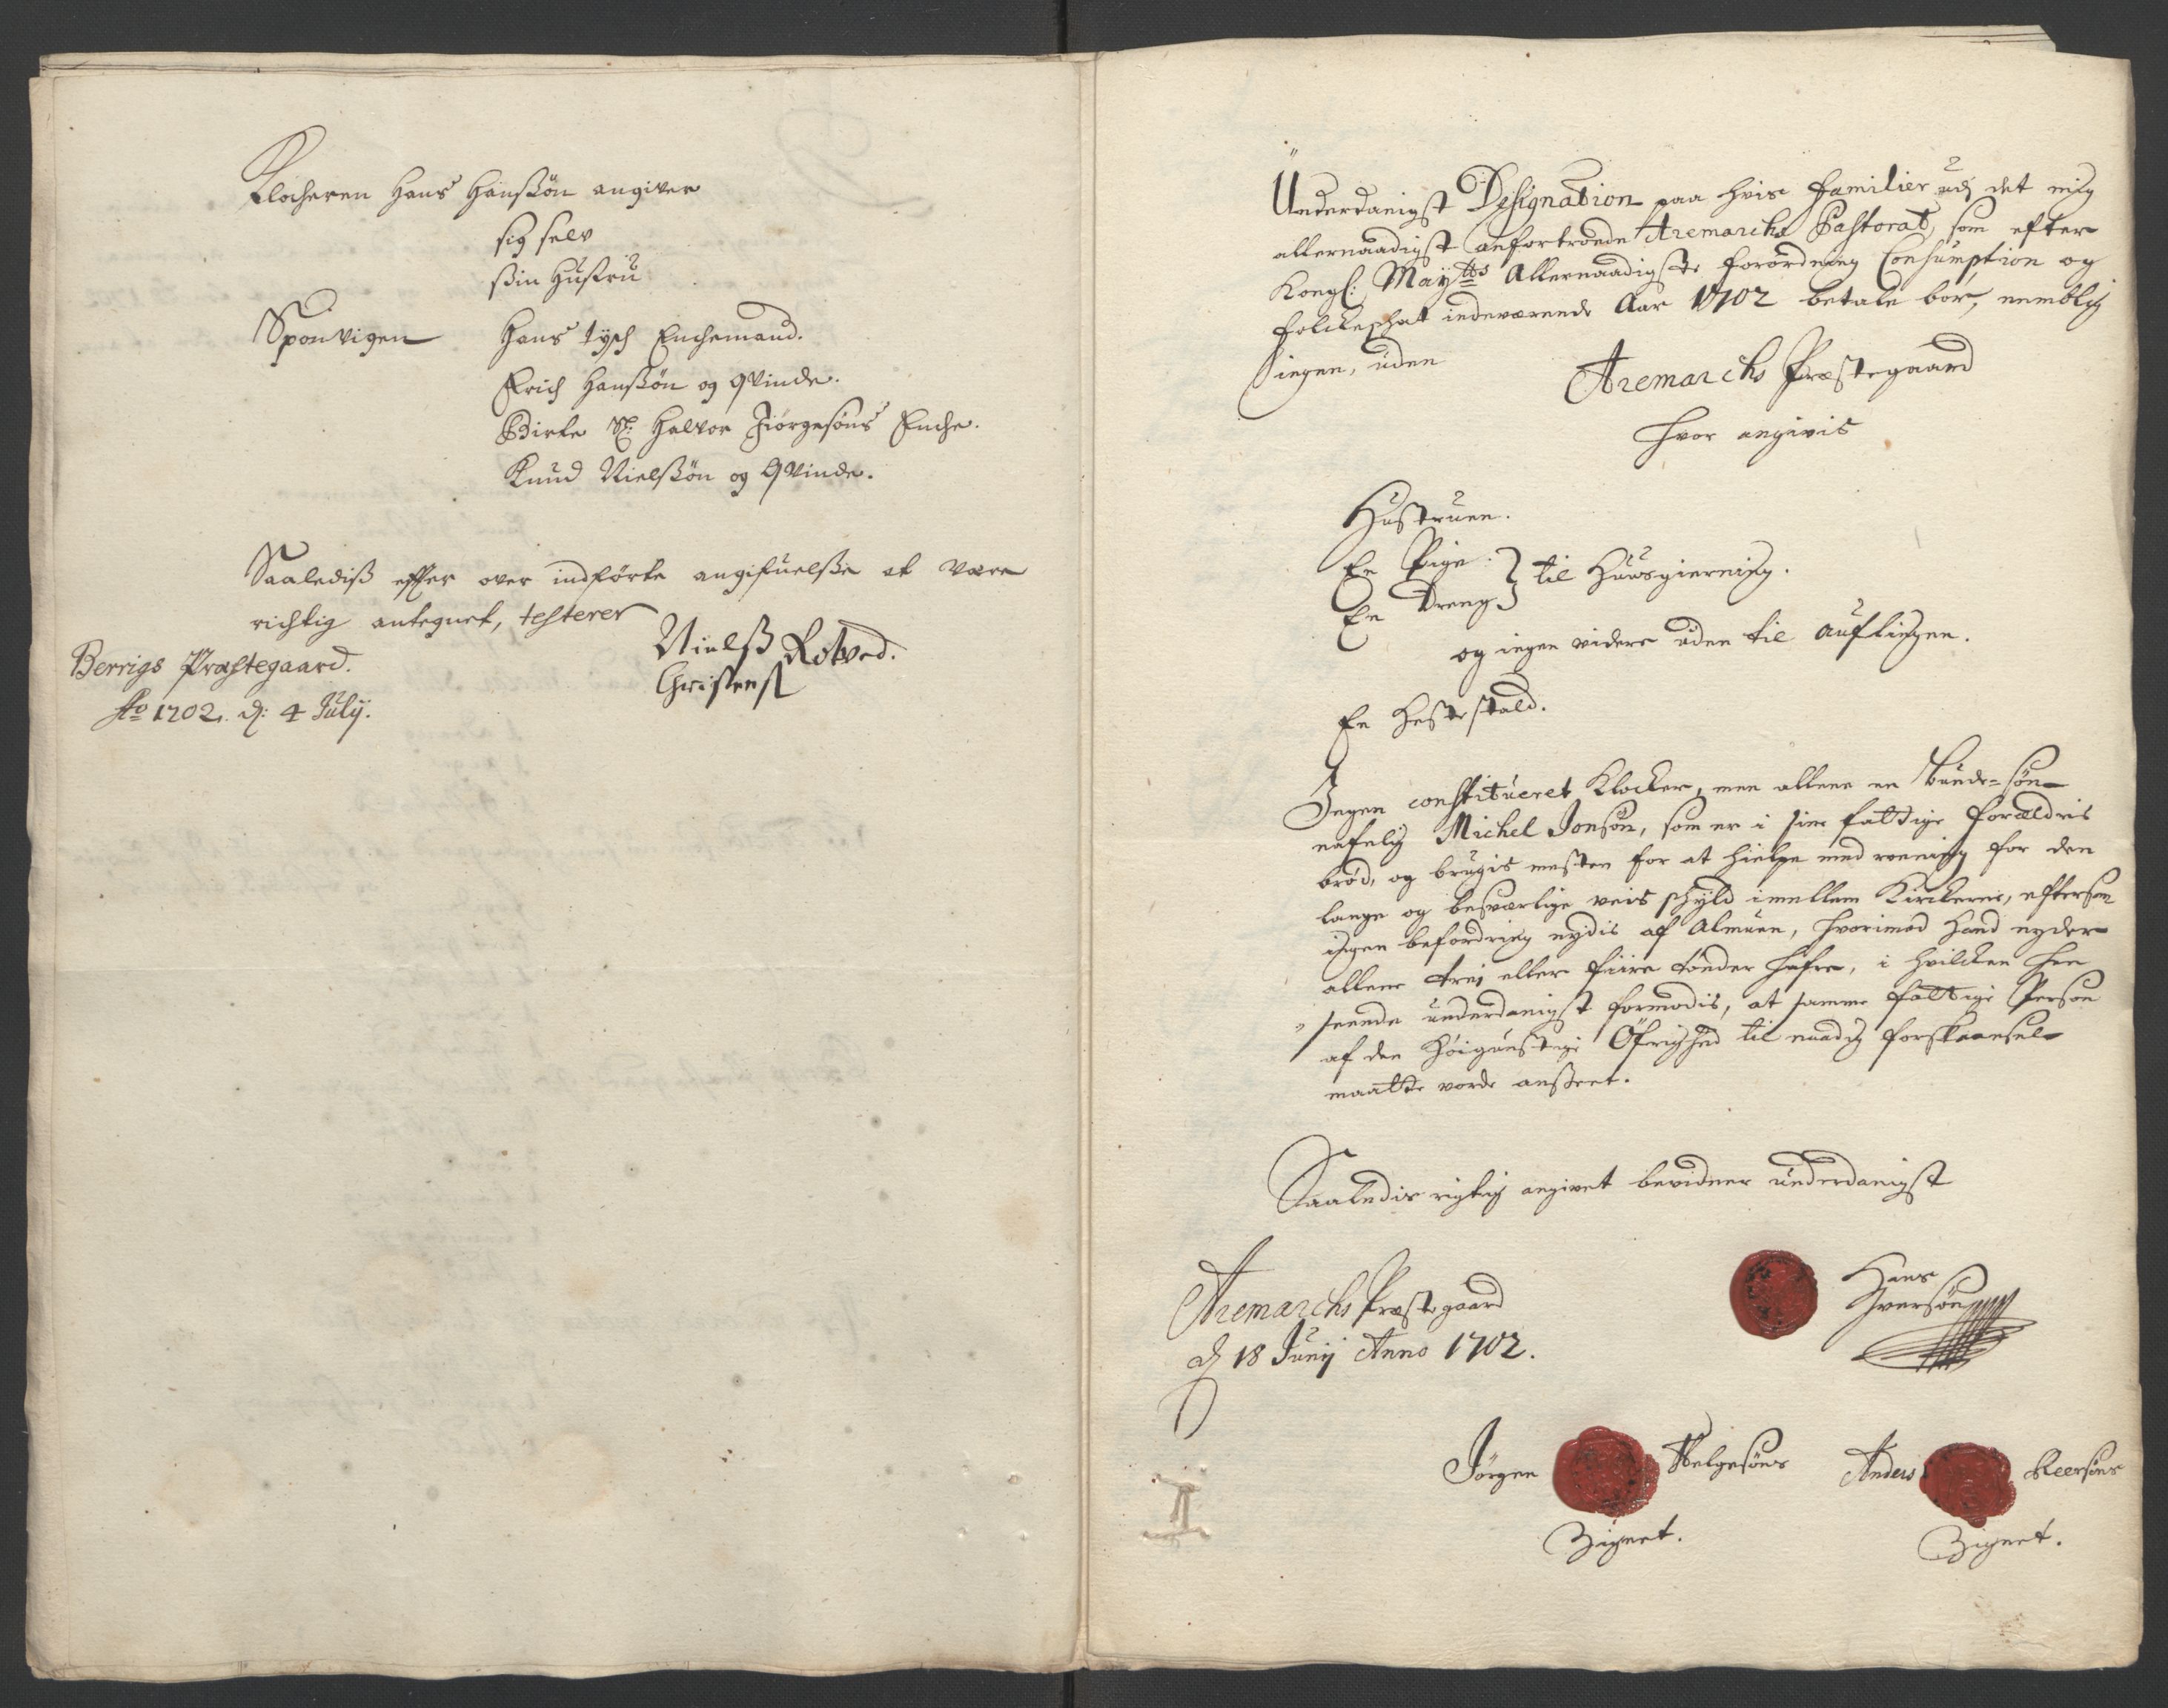 Klocheren Hans Hanßøn angiver
sig selv
ßin Hustru
Sponvigen Hans Tysch Enchemand.
Erich Hanßøn og Qvinde.
Birte Sl: Halvor Jiørgesøns Enche.
Knud Nielßøn og Qvinde.
Saalediß effter over indførte angifuelße at være
richtig antegnet, testerer
Nielß Rotved.
Christenß
Berrigs Præstegaard.
Ao 1702. d: 4 July.
Underdanigst Designation paa hvis familier udj det mig
allernaadigst anfortroede Aremarchs Pastorat, som efter
Kongl: Maytts Allernaadigste forordning Consumption og
folckeschat indeværende Aar 1702 betale bør, nemblig
ingen, uden
Aremarchs Præstegaard
hvor angivis
Hustruen.
En Pige
En Dreng } til Huusgierning.
og ingen videre uden til auflingen.
En Hestestald.
Ingen constitueret Klocker, men allene en Bunde-søn
nafnlig Michel Jonsøn, som er i sine fattige forældris
brød, og brugis mesten for at hielpe med roening for den
lange og besværlige veis schyld imellem Kirckerne, eftersom
ingen befordring nydis af Almuen, hvorimod Hand nyder
allene trej eller fiire tønder hafre, i hvilcken hen
seende underdanigst formodis, at samme fattige Person
af den Høigunstige Øfrighed til naadig forskaansel
maatte vorde anseet.
Saaledis rigtig angivet bevidner underdanigst
Aremarchs Præstegaard
d 18 Junij Anno 1702.
Hans
Iversøn
Jørgen Helgesøns Anders Reersøns
Zignet. Zignet.